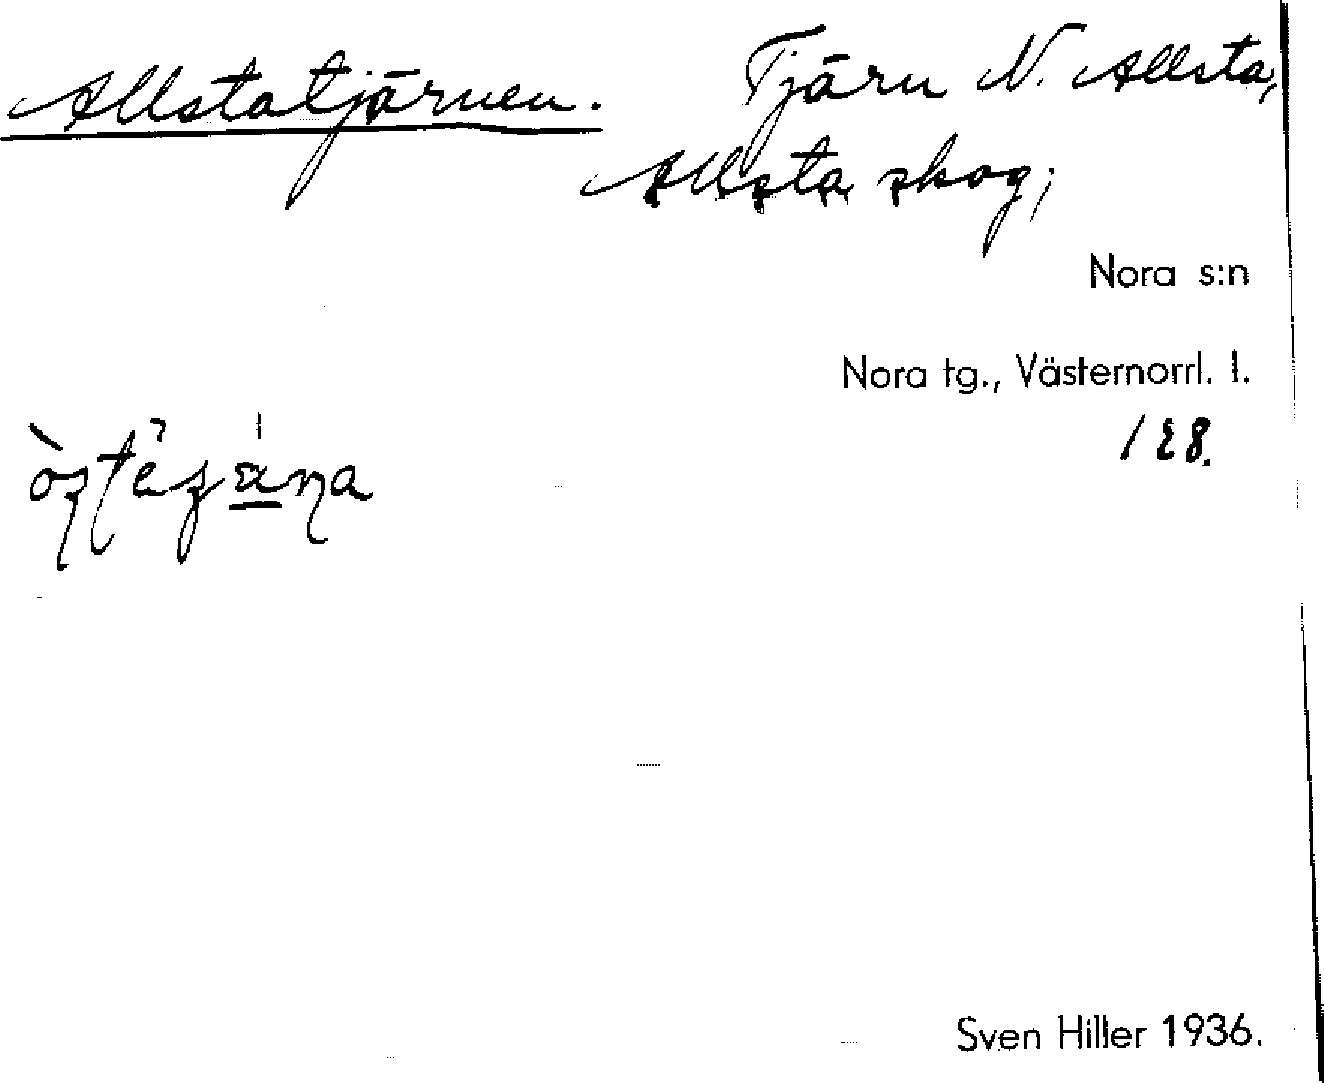 Allstatjärnen. Tjärn N. Allsta,
Allsta skog;
Nora s:n
Nora tg., Västernorrl. l.
128.
Sven Hiller 1936.